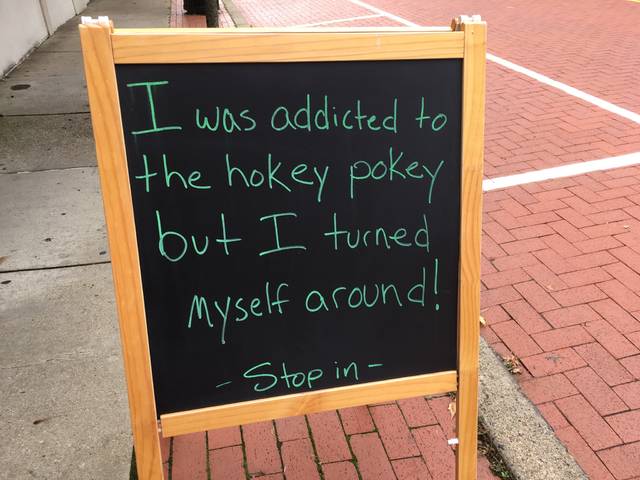 I was addicted to
the hokey pokey
but I turned
myself around!
- Stop in -